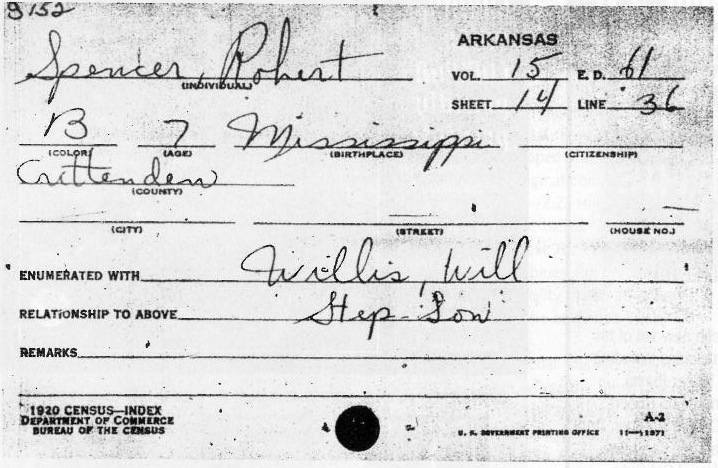 9152
ARKANSAS
Spencer, Robert
(INDIVIDUAL)
VOL. 15 E. D. 61
SHEET 14 LINE 36
B 7 Mississippi
(COLOR) (AGE) (BIRTHPLACE) (CITIZENSHIP)
Crittenden
(COUNTY)
(CITY) (STREET) (HOUSE NO.)
ENUMERATED WITH Willis, Will
RELATIONSHIP TO ABOVE Step-Son
REMARKS
1920 CENSUS—INDEX
DEPARTMENT OF COMMERCE
BUREAU OF THE CENSUS
A-2
U. S. GOVERNMENT PRINTING OFFICE 11—1371